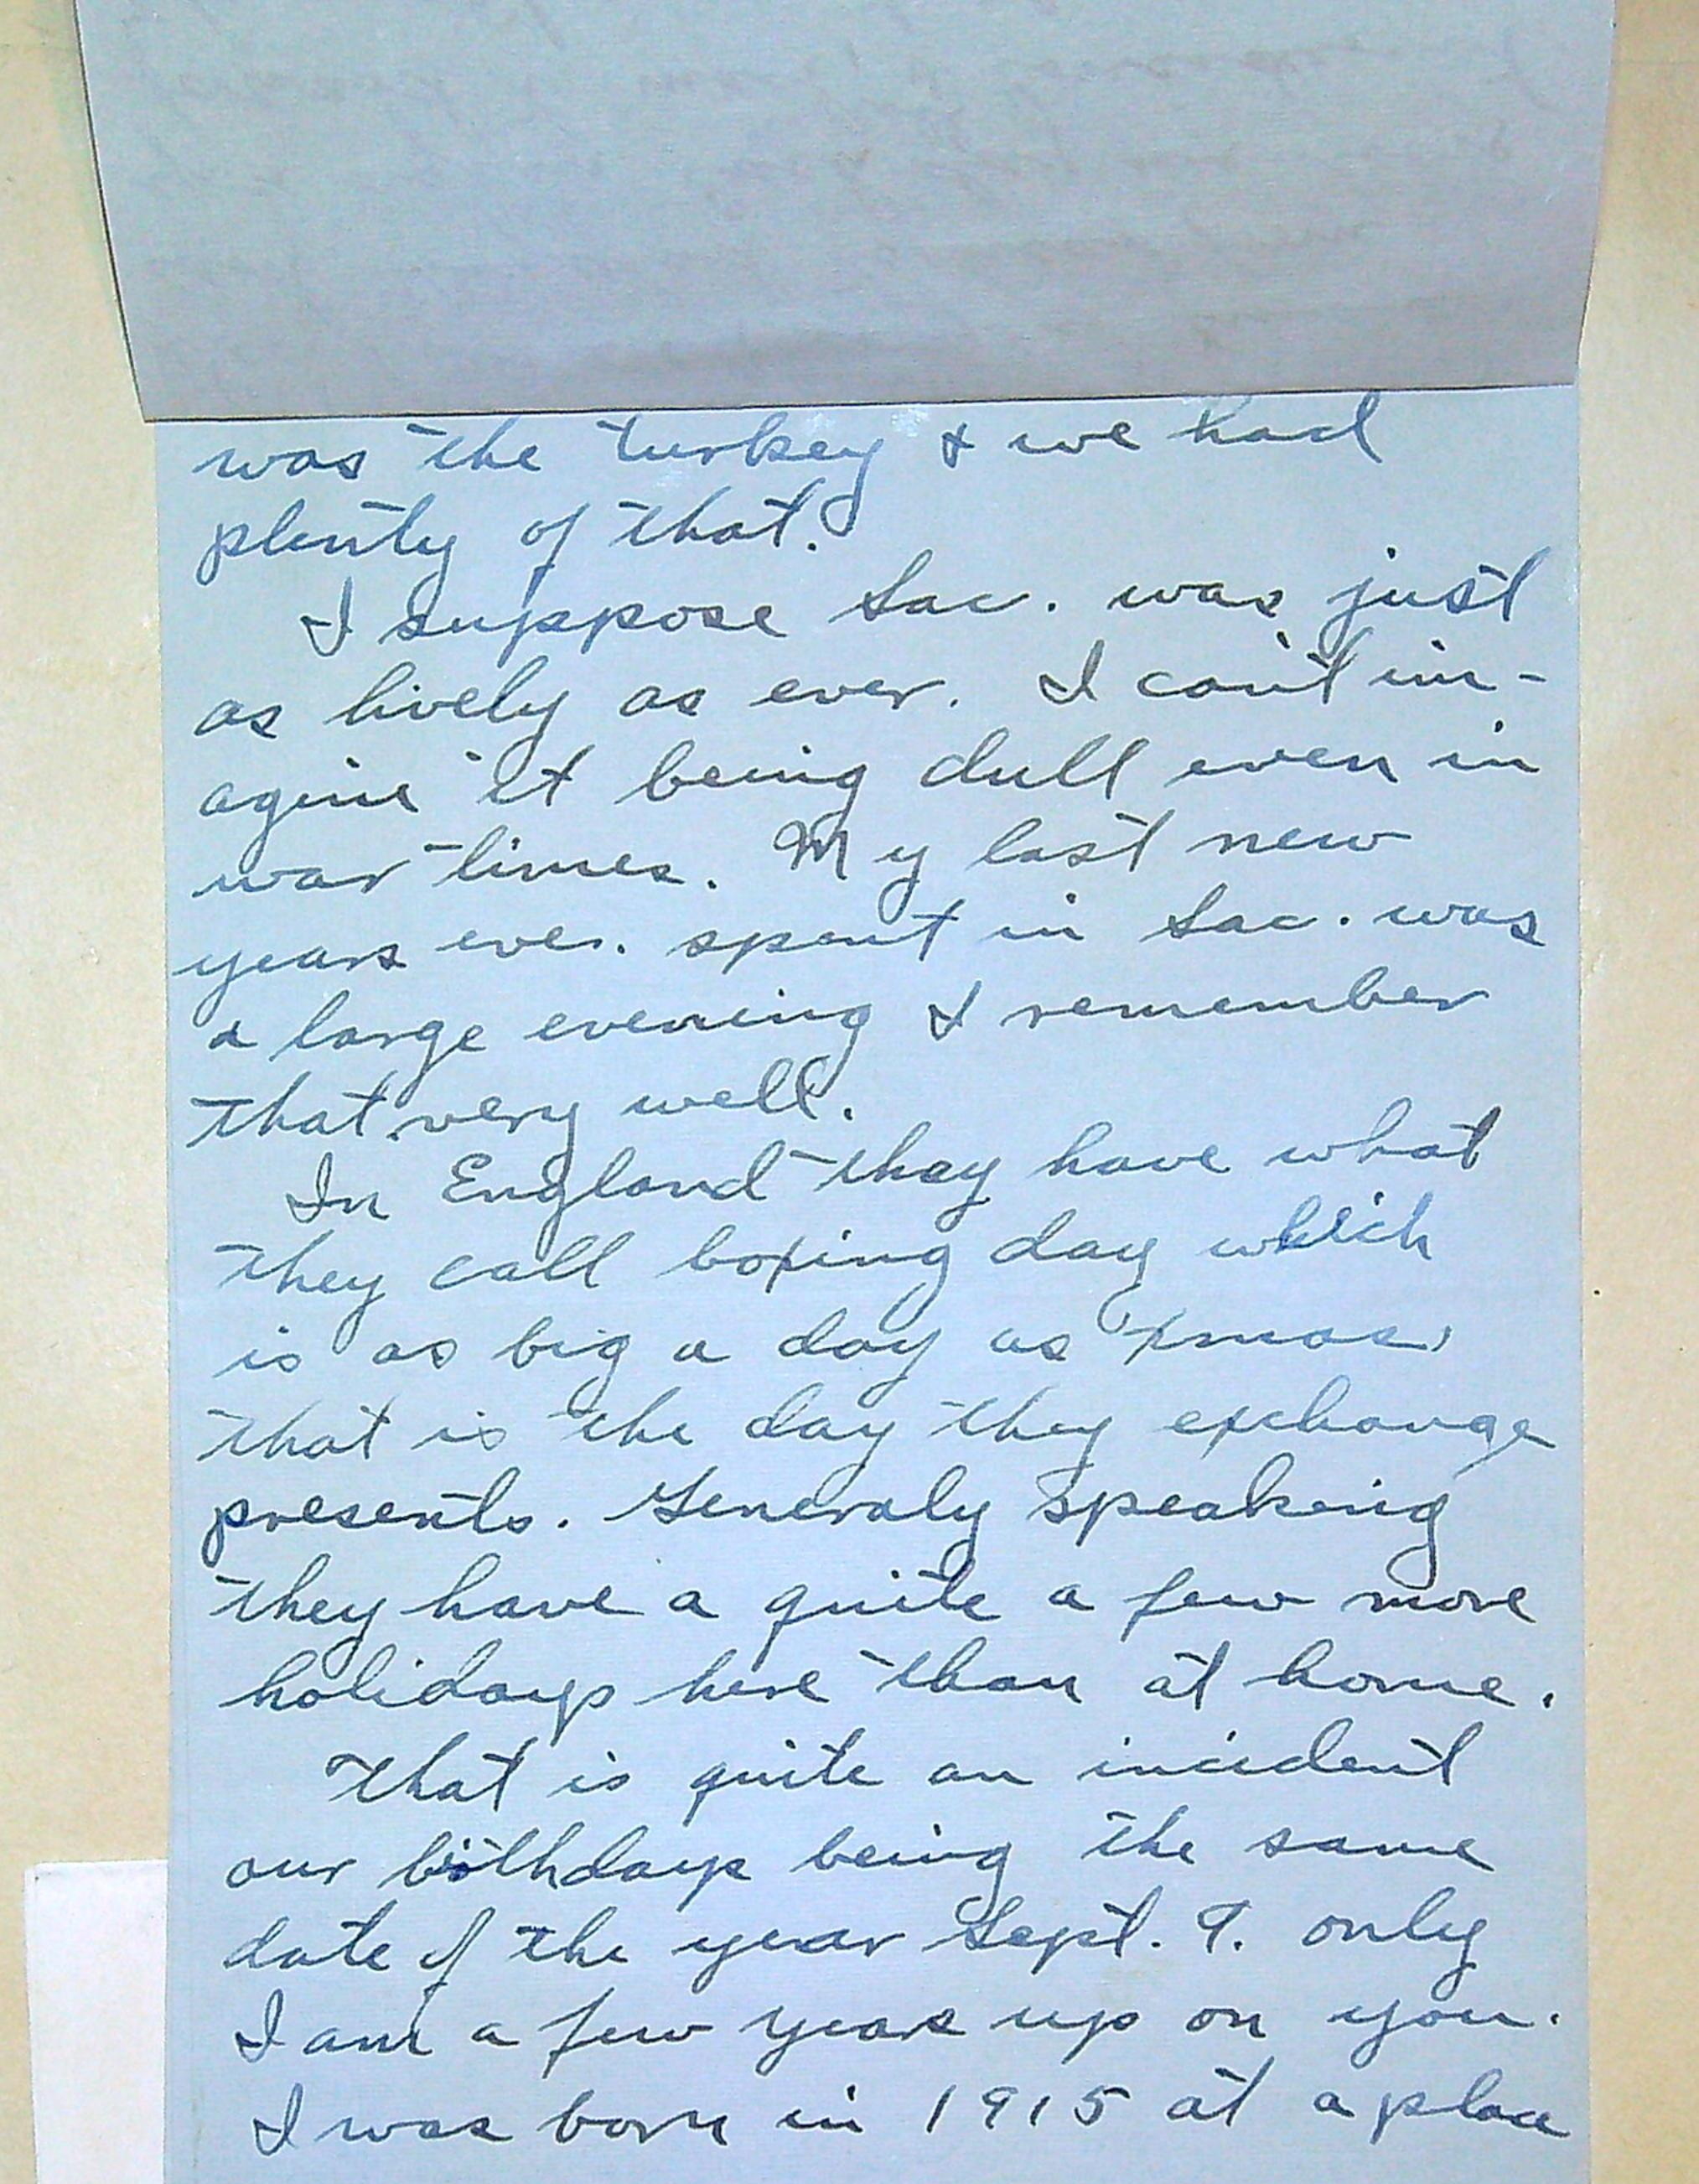 was the turkey & we had
plenty of that.
I suppose Sac. was just
as lively as ever. I can't im-
agine it being dull even in
war times. My last new
years eve. spent in Sac. was
a large evening I remember
that very well.
In England they have what
they call boxing day which
is as big a day as Xmas,
that is the day they exchange
presents. Generaly speaking
they have a quite a few more
holidays here than at home.
That is quite an incident
our birthdays being the same
date of the year Sept. 9. only
I am a few years up on you.
I was born in 1915 at a place